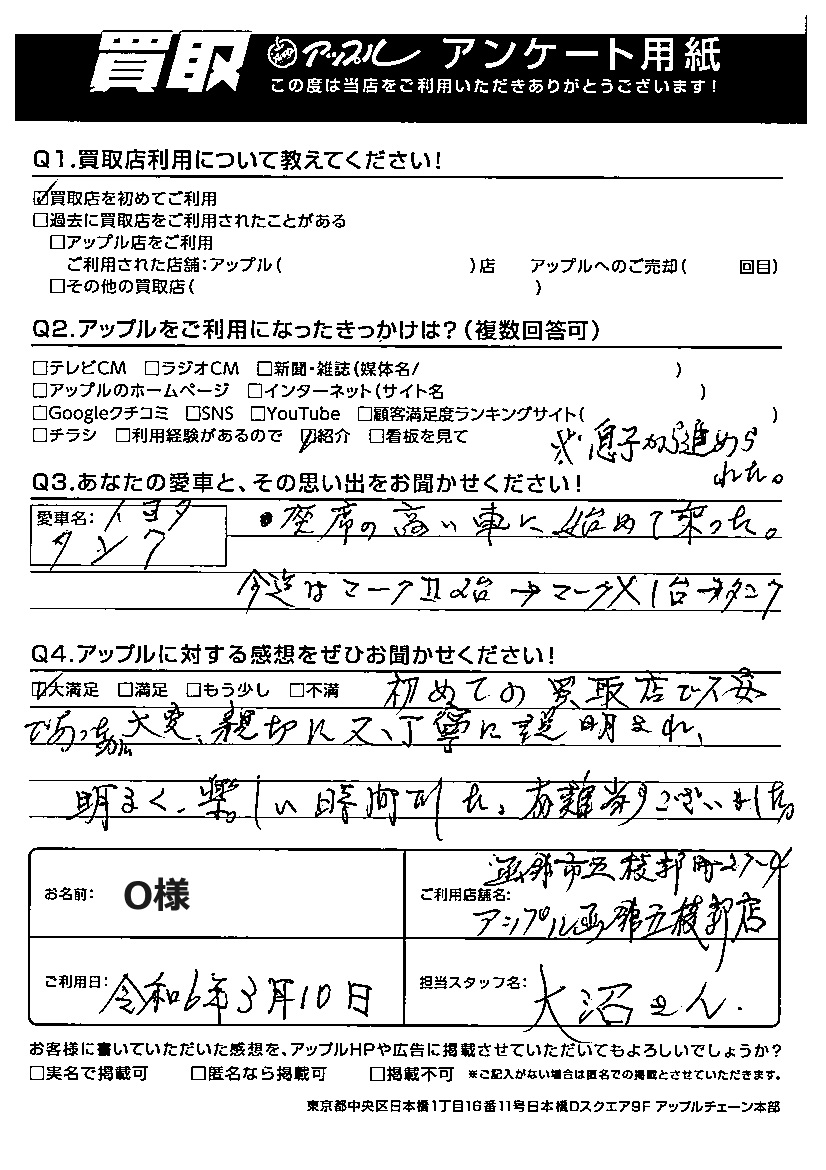 買取 アップル アンケート用紙
この度は当店をご利用いただきありがとうございます!
Q1.買取店利用について教えてください!
☑買取店を初めてご利用
□過去に買取店をご利用されたことがある
□アップル店をご利用
ご利用された店舗:アップル( )店 アップルへのご売却( 回目)
□その他の買取店( )
Q2.アップルをご利用になったきっかけは?(複数回答可)
□テレビCM □ラジオCM □新聞・雑誌(媒体名/ )
□アップルのホームページ □インターネット(サイト名 )
□Googleクチコミ □SNS □YouTube □顧客満足度ランキングサイト( )
□チラシ □利用経験があるので ☑紹介 □看板を見て
※息子から進めら
れた。
Q3.あなたの愛車と、その思い出をお聞かせください!
愛車名: トヨタ
タンク
・座席の高い車に始めて乗った。
今迄はマークⅡ2台→マークX1台→タンク
Q4.アップルに対する感想をぜひお聞かせください!
☑大満足 □満足 □もう少し □不満 初めての買取店で不安
であったが、大変、親切に又、丁寧に説明され、
明るく、楽しい時間でした。有難当うございました。
お名前: O様
函館市五稜郭町27-4
ご利用店舗名:
アップル函館五稜郭店
ご利用日: 令和6年3月10日
担当スタッフ名: 大沼さん.
お客様に書いていただいた感想を、アップルHPや広告に掲載させていただいてもよろしいでしょうか?
□実名で掲載可 □匿名なら掲載可 □掲載不可 ※ご記入がない場合は匿名での掲載とさせていただきます。
東京都中央区日本橋1丁目16番11号日本橋Dスクエア9F アップルチェーン本部